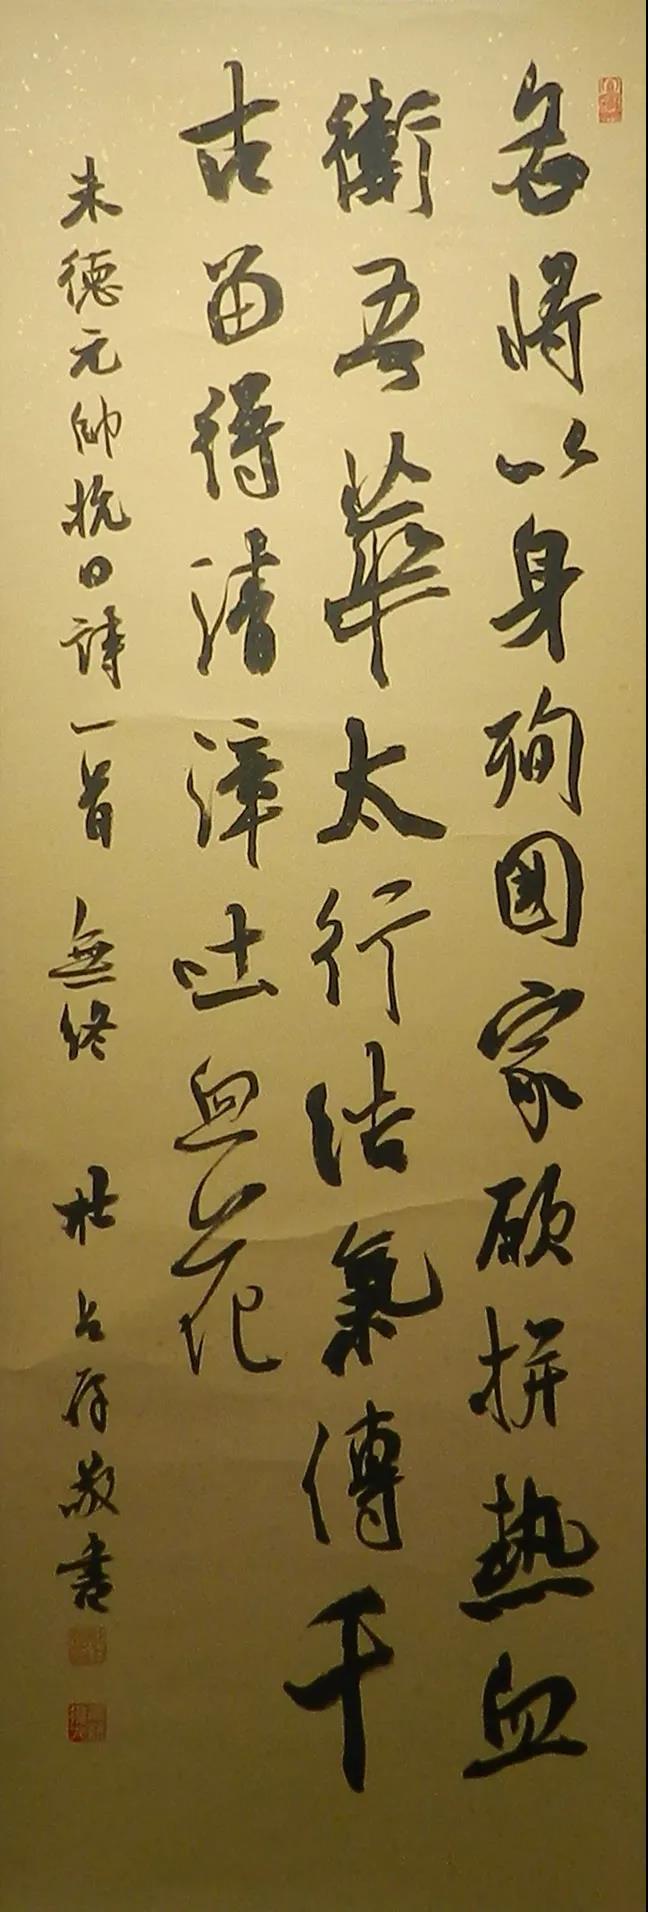 名將以身殉國家願拼熱血
衛吾華太行浩氣傳千
古留得清漳吐血花
朱德元帥抗日詩一首 無終 杜占存敬書